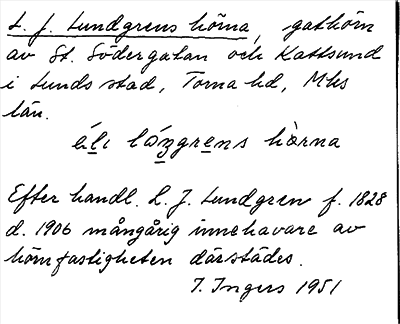 L. J. Lundgrens hörna, gathörn
av St. Södergatan och Kattsund
i Lunds stad, Torna hd, Mhs
län.
Efter handl. L. J. Lundgren f. 1828
d. 1906 mångårig innehavare av
hörnfastigheten därstädes.
I. Ingers 1951